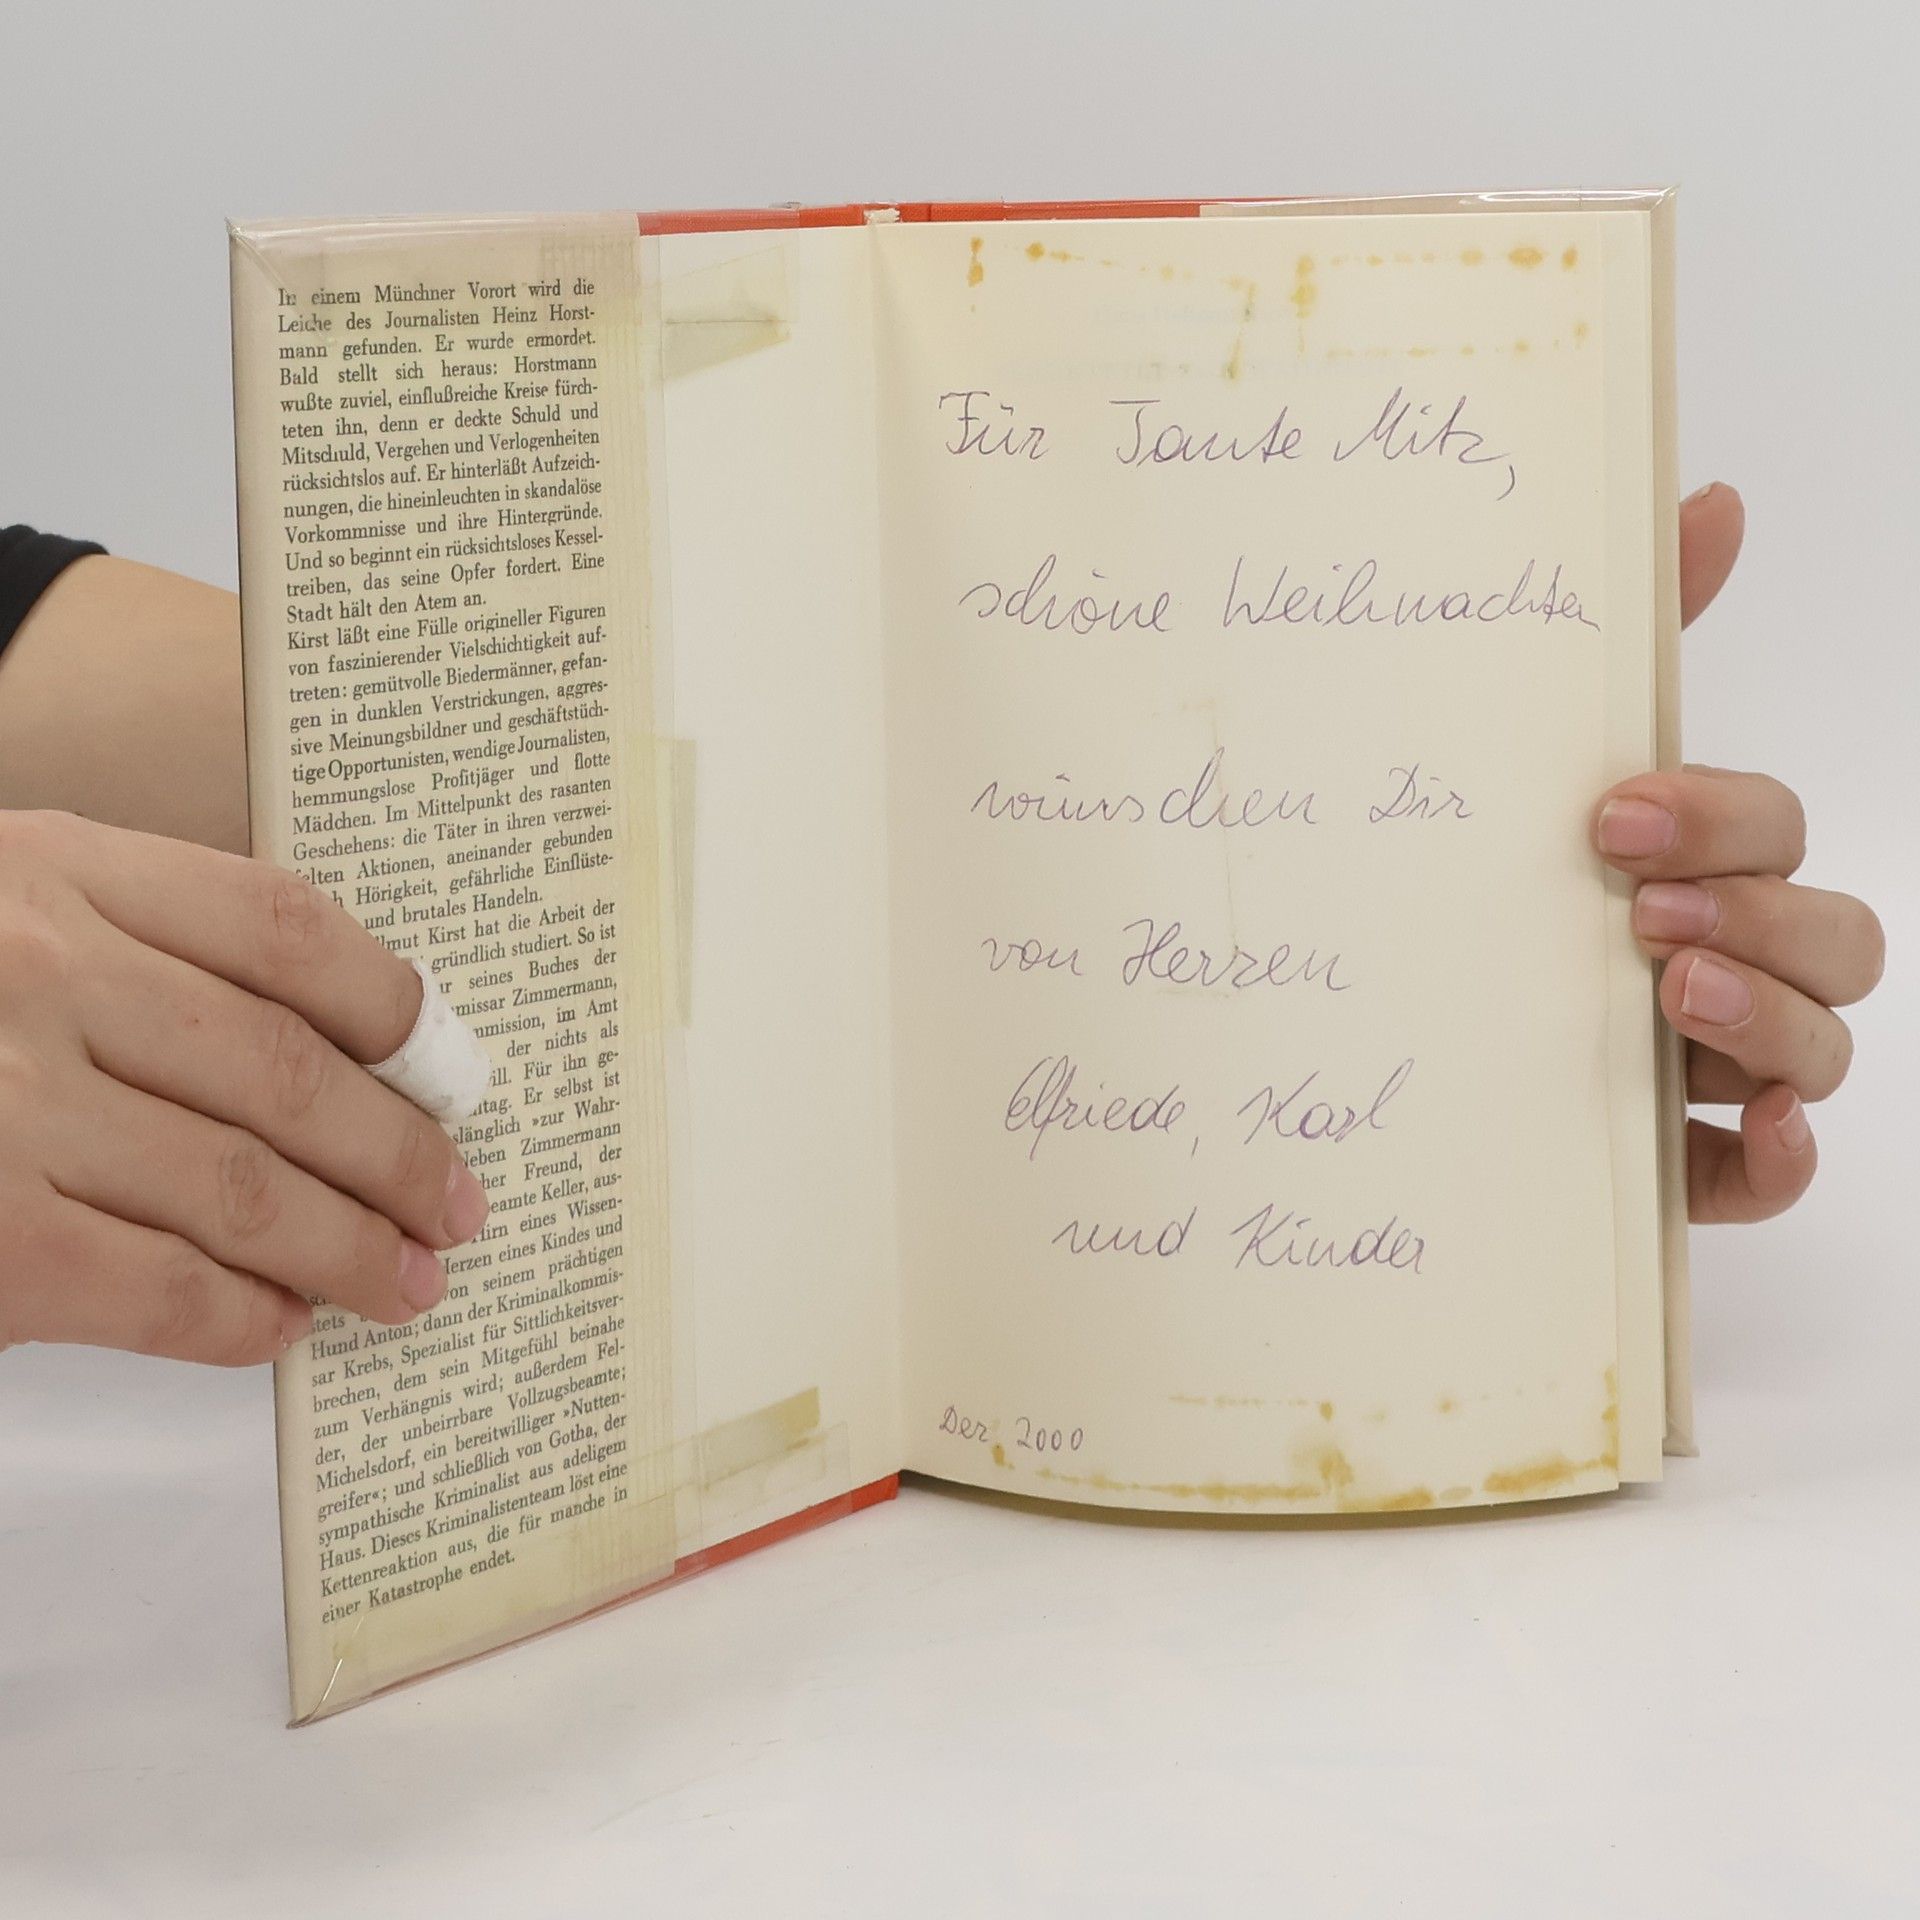 In einem Münchner Vorort wird die
Leiche des Journalisten Heinz Horst-
mann gefunden. Er wurde ermordet.
Bald stellt sich heraus: Horstmann
wußte zuviel, einflußreiche Kreise fürch-
teten ihn, denn er deckte Schuld und
Mitschuld, Vergehen und Verlogenheiten
rücksichtslos auf. Er hinterläßt Aufzeich-
nungen, die hineinleuchten in skandalöse
Vorkommnisse und ihre Hintergründe.
Und so beginnt ein rücksichtsloses Kessel-
treiben, das seine Opfer fordert. Eine
Stadt hält den Atem an.
Kirst läßt eine Fülle origineller Figuren
von faszinierender Vielschichtigkeit auf-
treten: gemütvolle Biedermänner, gefan-
gen in dunklen Verstrickungen, aggres-
sive Meinungsbildner und geschäftstüch-
tige Opportunisten, wendige Journalisten,
hemmungslose Profitjäger und flotte
Mädchen. Im Mittelpunkt des rasanten
Geschehens: die Täter in ihren verzwei-
felten Aktionen, aneinander gebunden
Hörigkeit, gefährliche Einflüste-
und brutales Handeln.
Kirst hat die Arbeit der
gründlich studiert. So ist
seines Buches der
Zimmermann,
im Amt
der nichts als
Für ihn ge-
Er selbst ist
»zur Wahr-
Neben Zimmermann
Freund, der
Keller, aus-
eines Wissen-
Herzen eines Kindes und
von seinem prächtigen
Hund Anton; dann der Kriminalkommis-
sar Krebs, Spezialist für Sittlichkeitsver-
brechen, dem sein Mitgefühl beinahe
zum Verhängnis wird; außerdem Fel-
der, der unbeirrbare Vollzugsbeamte;
Michelsdorf, ein bereitwilliger »Nutten-
greifer«; und schließlich von Gotha, der
sympathische Kriminalist aus adeligem
Haus. Dieses Kriminalistenteam löst eine
Kettenreaktion aus, die für manche in
einer Katastrophe endet.
Für Tante Mitz,
schöne Weihnachten
wünschen Dir
von Herzen
Elfriede, Karl
und Kinder
Dez. 2000